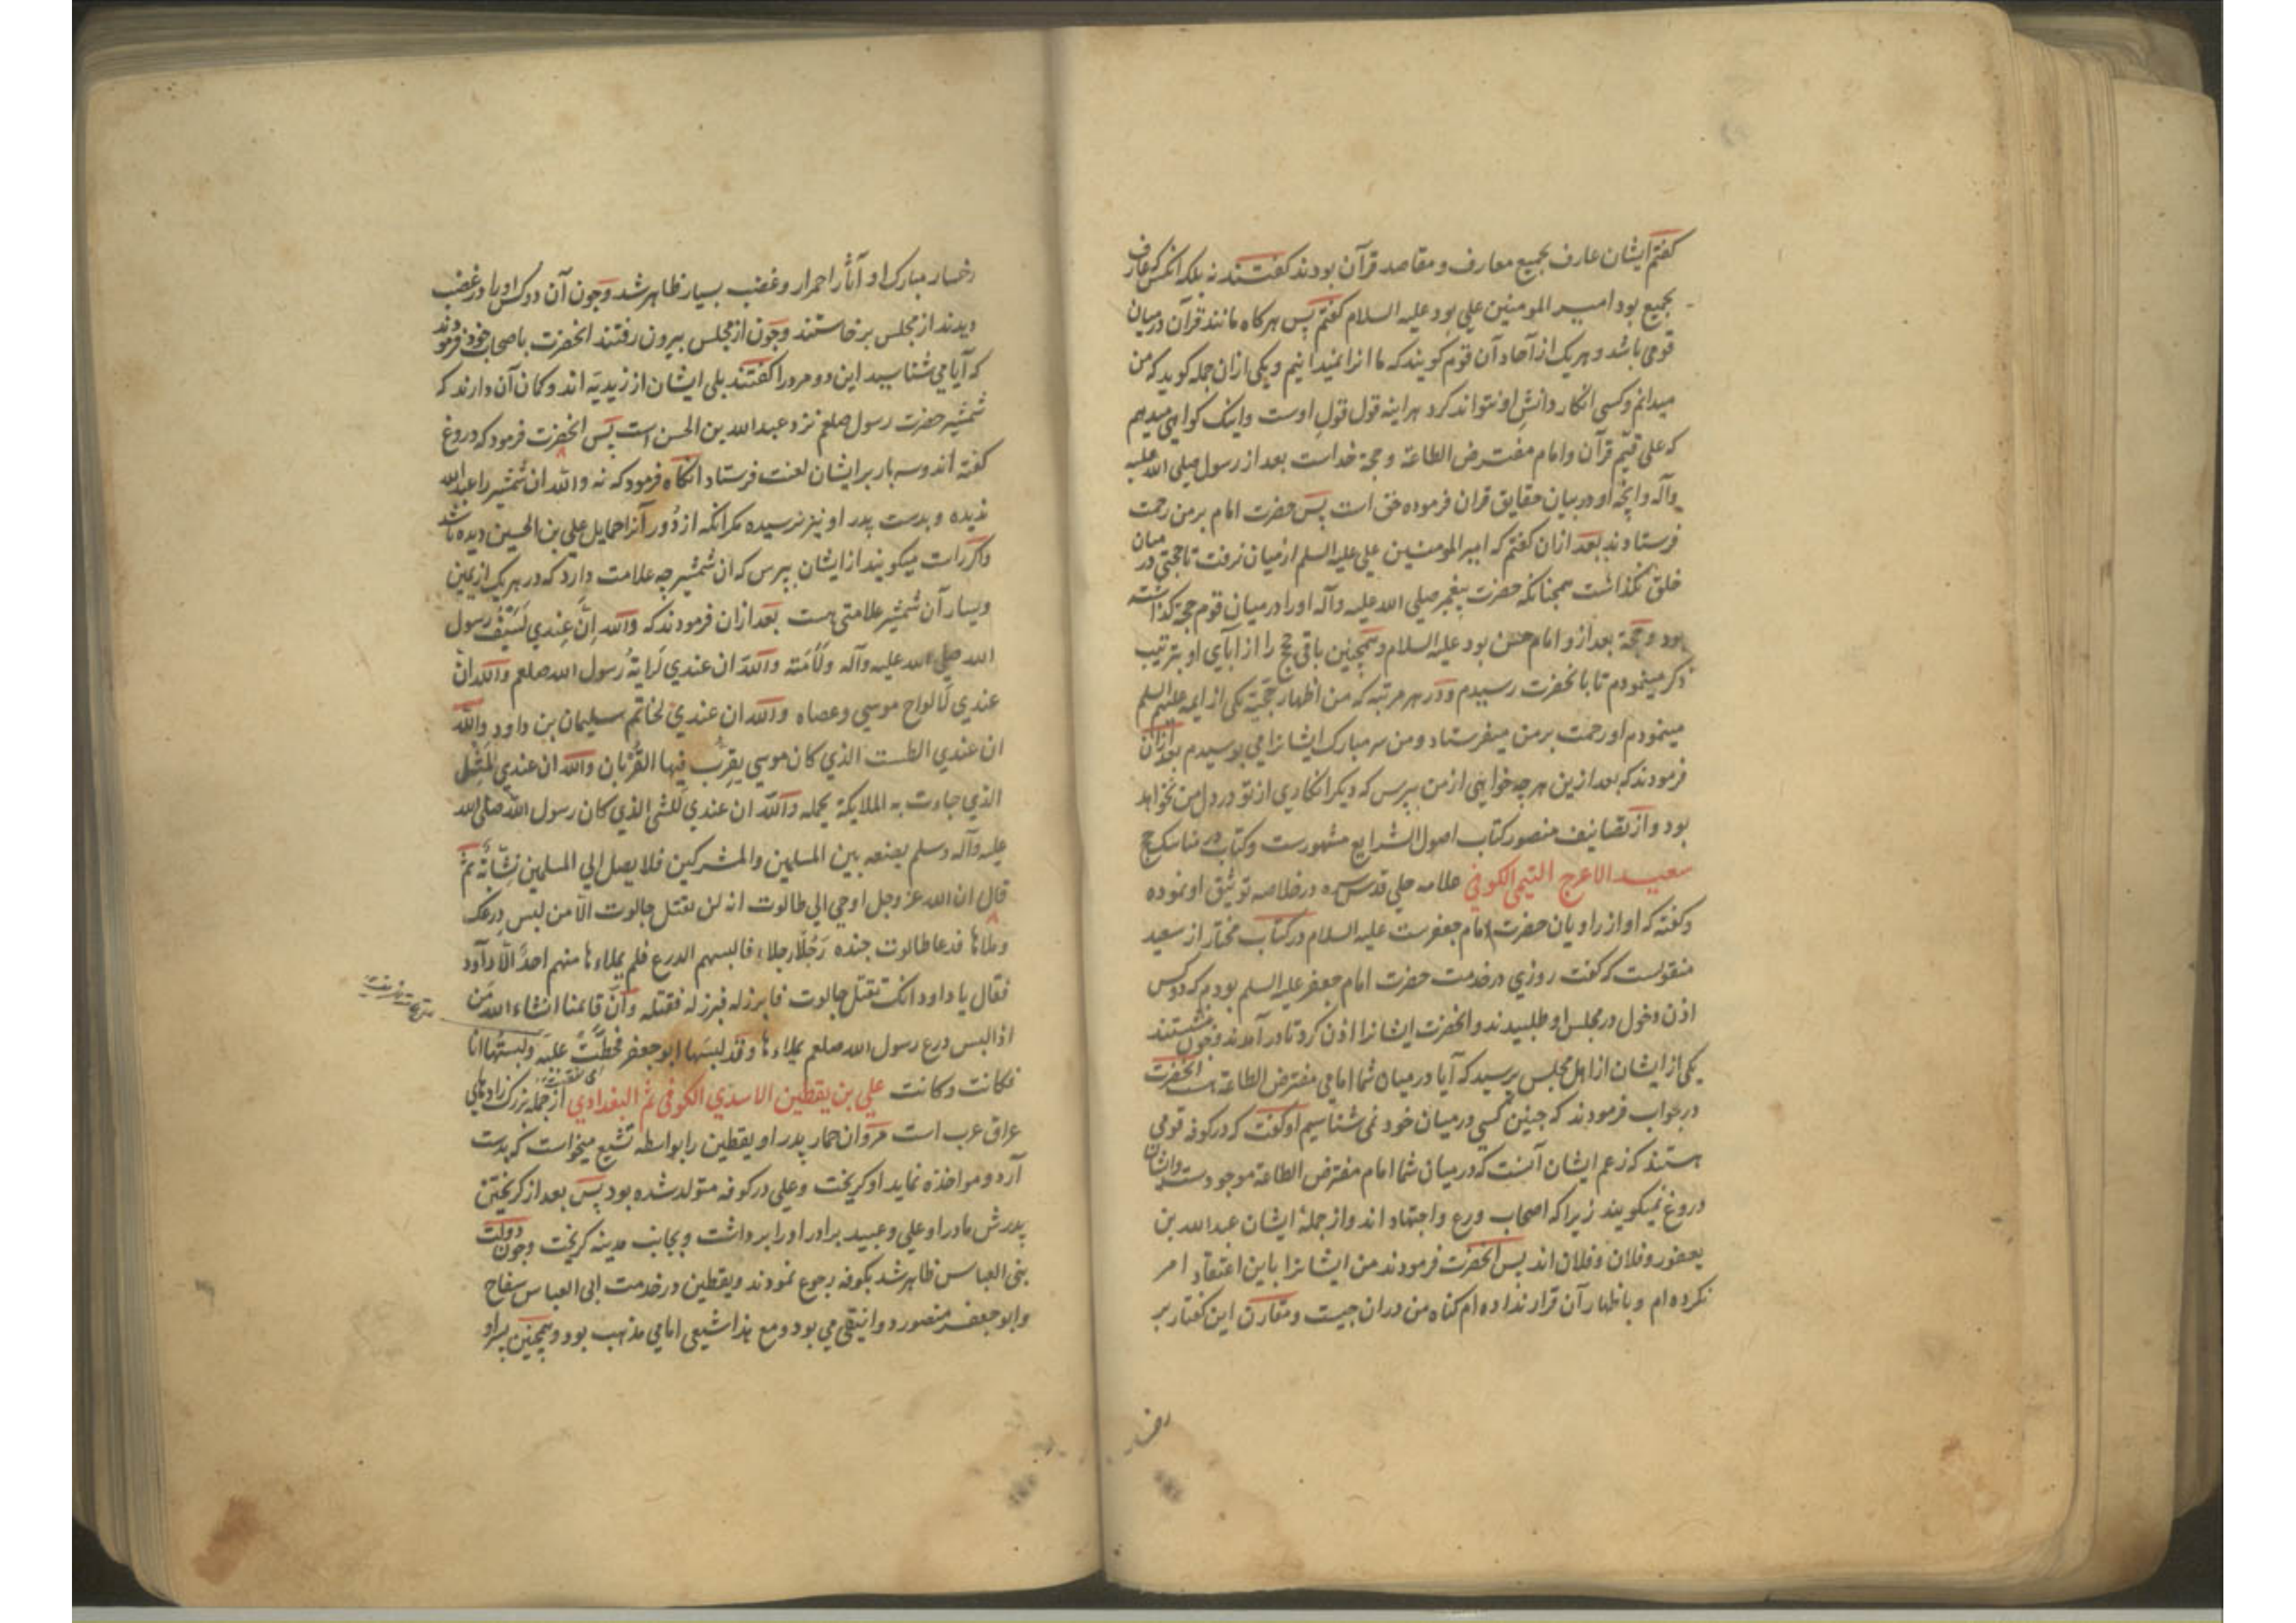 كفتم ايشان عارف بجميع معارف و مقاصد قرآن بودند كفتند نه بلكه انكس كه عارف
بجميع بود امير المومنين علي بود عليه السلام كفتم پس هركاه مانند قرآن درميان
قومي باشد و هر يك از آحاد آن قوم كويند كه ما انرا نميدانيم و يكي ازان جمله كويد كه من
ميدانم و كسي انكار دانش او نتواند كرد هر اينه قول قول اوست و اينك كواهي ميدهم
كه علي قيّم قرآن و امام مفترض الطاعة و حجة خداست بعد از رسول صلى الله عليه
وآله و انچه او در بيان حقايق قران فرموده حق است پس حضرت امام بر من رحمت
فرستادند بعد ازان كفتم كه امير المومنين علي عليه السلم از ميان نرفت تا حجتي در ميان
خلق نكذاشت همچنانكه حضرت پيغمبر صلى الله عليه وآله او را درميان قوم حجة كذاشته
بود و حجة بعد ازو امام حسن بود عليه السلام و همچنين باقي حجج را از آباي او بترتيب
ذكر مينمودم تا بانحضرت رسيدم و در هر مرتبه كه من اظهار حجّيّة يكي از ايمه عليهم السلم
مينمودم او رحمت بر من ميفرستاد و من سر مبارك ايشانرا مي بوسيدم بعد ازان
فرمودند كه بعد ازين هر چه خواهي از من بپرس كه ديكر انكاري از تو در دل من نخواهد
بود و از تصانيف منصور كتاب اصول الشرايع مشهورست و كتاب در مناسك حج
سعيد الاعرج التيمي الكوفي علامه حلي قدس سره در خلاصه توثيق او نموده
و كفته كه او از راويان حضرت امام جعفرست عليه السلام در كتاب مختار از سعيد
منقولست كه كفت روزي در خدمت حضرت امام جعفر عليه السلم بودم كه دو كس
اذن دخول در مجلس او طلبيدند و انحضرت ايشانرا اذن كرد تا در آمدند و چون نشستند
يكي از ايشان از اهل مجلس پرسيد كه آيا درميان شما امامي مفترض الطاعة هست انحضرت
در جواب فرمودند كه چنين كسي درميان خود نمي شناسيم او كفت كه در كوفه قومي
هستند كه زعم ايشان آنست كه درميان شما امام مفترض الطاعة موجودست و ايشان
دروغ نميكويند زيرا كه اصحاب ورع و اجتهاد اند و از جملهٔ ايشان عبد الله بن
يعفور و فلان و فلان اند پس انحضرت فرمودند من ايشانرا باين اعتقاد امر
نكرده ام و باظهار آن قرار نداده ام كناه من دران چيست و مقارن اين كفتار بر
رخسار
رخسار مبارك او آثار احمرار و غضب بسيار ظاهر شد و چون آن دو كس او را در غضب
ديدند از مجلس برخاستند و چون از مجلس بيرون رفتند انحضرت باصحاب خود فرمودند
كه آيا مي شناسيد اين دو مرد را كفتند بلي ايشان از زيديّه اند و كمان آن دارند كه
شمشير حضرت رسول صلعم نزد عبد الله بن الحسن است پس انحضرت فرمود كه دروغ
كفته اند و سه بار بر ايشان لعنت فرستاد انكاه فرمود كه نه والله ان شمشير را عبد الله
نديده و بدست پدر او نيز نرسيده مكر انكه از دُور آنرا حمايل علي بن الحسين ديده باشد
و اكر راست ميكويند از ايشان بپرس كه ان شمشير چه علامت دارد كه در هر يك از يمين
و يسار آن شمشير علامتي هست بعد ازان فرمودند كه والله اِنّ عِندي لسَيفُ رسول
الله صلى الله عليه وآله ولأمَته والله ان عندي لَراية رسول الله صلعم والله انّ
عندي لألواح موسي وعصاه والله ان عندي لخاتم سليمان بن داود والله
ان عندي الطست الذي كان موسي يقرب فيها القُربان والله ان عندي لَمَثَل
الذي جاءت به الملايكة يحمله والله ان عندي للشئ الذي كان رسول الله صلى الله
عليه وآله وسلم يضعه بين المسلمين والمشركين فلا يصل الي المسلمين نشّابة ثم
قال ان الله عز وجل اوحي الي طالوت انه لن يقتل جالوت الّا من لبس درعك
وملأها فدعا طالوت جنده رَجُلًا رجلا فالبسهم الدرع فلم يملاءها منهم احدٌ الّا داود
فقال يا داود انك تقتل جالوت فابرز له فبرز له فقتله وانّ قايمنا انشاء الله مَن
اذا لبس درع رسول الله صلعم يملاءها وقد لبسها ابو جعفر فخطّت عليه ولبستها انا
فكانت وكانت علي بن يقطين الاسدي الكوفي ثم البغدادي از جمله بزرك زادهاي
عراق عرب است مروان حمار پدر او يقطين را بواسطه تشيع ميخواست كه بدست
آرد و مواخذه نمايد او كريخت و علي در كوفه متولد شده بود پس بعد از كريختن
پدرش مادر او علي و عبيد برادر او را برداشت و بجانب مدينه كريخت و چون دولت
بني العباس ظاهر شد بكوفه رجوع نمودند و يقطين در خدمت ابي العباس سفاح
و ابو جعفر منصور دوانيقي مي بود و مع هذا شيعي امامي مذهب بود و همچنين پسر او